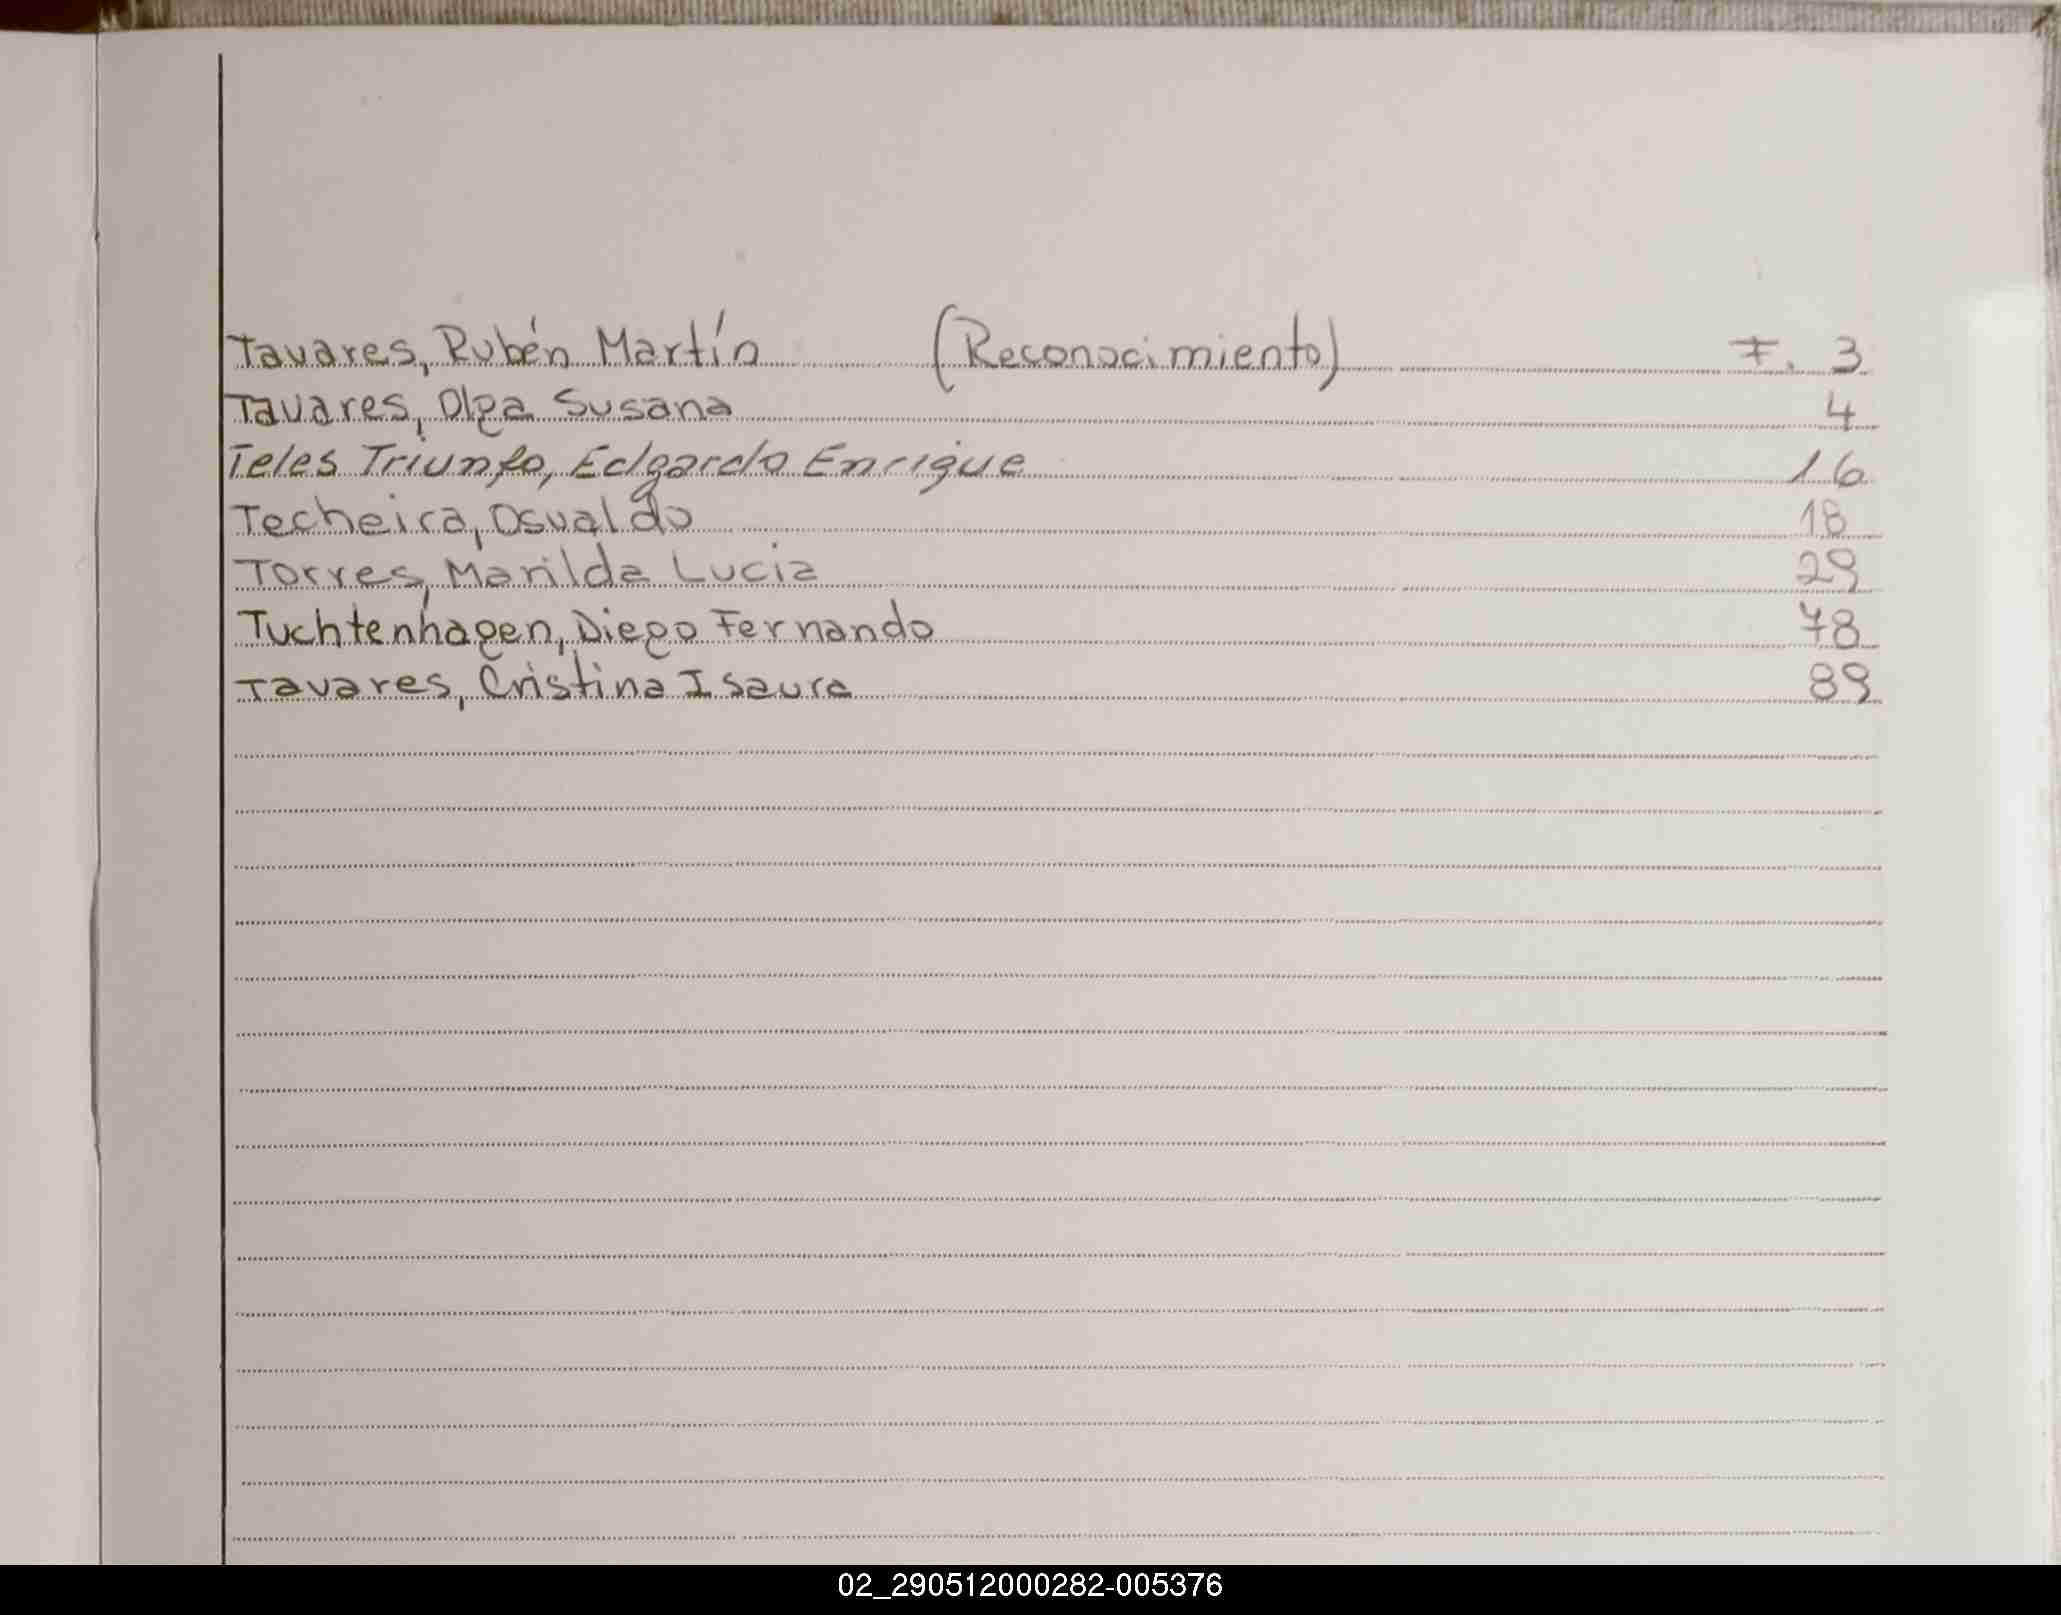 Tavares, Rubén Martín (Reconocimiento) F. 3
Tavares, Olga Susana 4
Teles Triunfo, Edgardo Enrique 16
Techeira, Osvaldo 18
Torres, Marilda Lucia 29
Tuchtenhagen, Diego Fernando 78
Tavares, Cristina Isaura 89
02_290512000282-005376